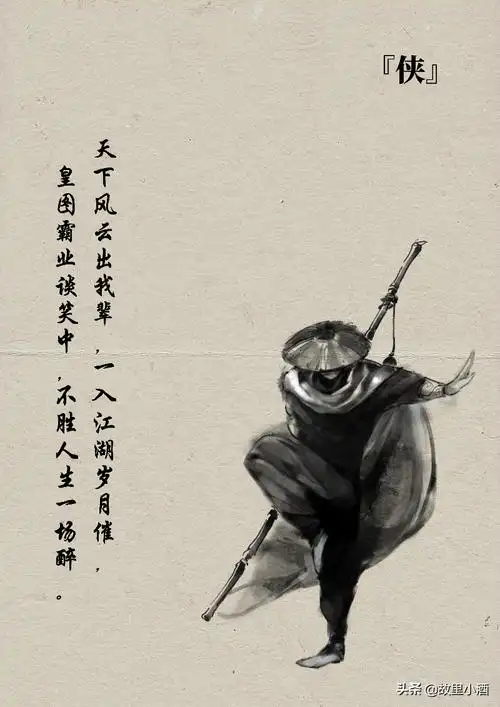 『侠』
天下风云出我辈，一入江湖岁月催，
皇图霸业谈笑中，不胜人生一场醉。
头条 @故里小酒